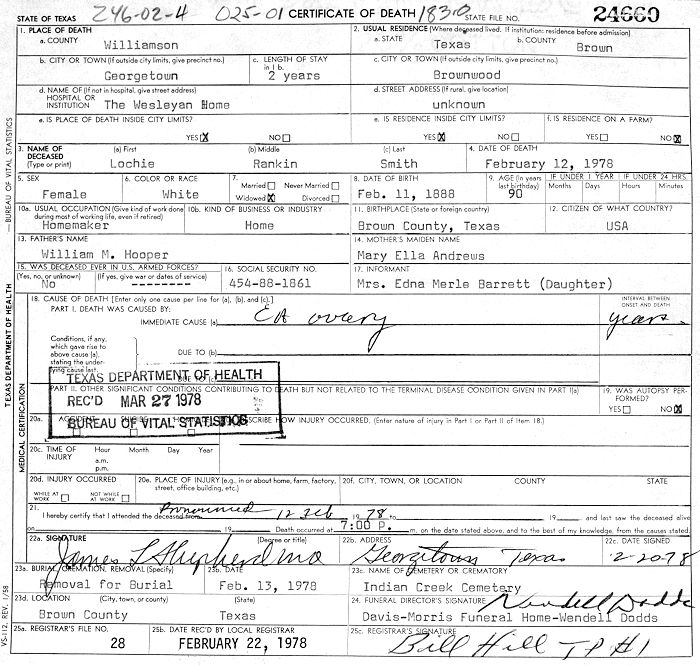 246-02-4 025-01 CERTIFICATE OF DEATH 1830
STATE OF TEXAS STATE FILE NO. 24660
1. PLACE OF DEATH
a. COUNTY Williamson
2. USUAL RESIDENCE (Where deceased lived. If institution: residence before admission)
a. STATE Texas b. COUNTY Brown
b. CITY OR TOWN (If outside city limits, give precinct no.) Georgetown
c. LENGTH OF STAY in 1 b. 2 years
c. CITY OR TOWN (If outside city limits, give precinct no.) Brownwood
d. NAME OF (If not in hospital, give street address) HOSPITAL OR INSTITUTION The Wesleyan Home
d. STREET ADDRESS (If rural, give location) unknown
e. IS PLACE OF DEATH INSIDE CITY LIMITS? YES X NO
e. IS RESIDENCE INSIDE CITY LIMITS? YES X NO
f. IS RESIDENCE ON A FARM? YES NO X
3. NAME OF DECEASED (Type or print)
(a) First Lochie
(b) Middle Rankin
(c) Last Smith
4. DATE OF DEATH February 12, 1978
5. SEX Female
6. COLOR OR RACE White
7. Married Never Married Widowed X Divorced
8. DATE OF BIRTH Feb. 11, 1888
9. AGE (In years last birthday) 90
IF UNDER 1 YEAR Months Days
IF UNDER 24 HRS. Hours Minutes
10a. USUAL OCCUPATION (Give kind of work done during most of working life, even if retired) Homemaker
10b. KIND OF BUSINESS OR INDUSTRY Home
11. BIRTHPLACE (State or foreign country) Brown County, Texas
12. CITIZEN OF WHAT COUNTRY? USA
13. FATHER'S NAME William M. Hooper
14. MOTHER'S MAIDEN NAME Mary Ella Andrews
15. WAS DECEASED EVER IN U.S. ARMED FORCES?
(Yes, no, or unknown) No (If yes, give war or dates of service) ---------
16. SOCIAL SECURITY NO. 454-88-1861
17. INFORMANT Mrs. Edna Merle Barrett (Daughter)
18. CAUSE OF DEATH [Enter only one cause per line for (a), (b), and (c).]
PART I. DEATH WAS CAUSED BY:
IMMEDIATE CAUSE (a) CA ovary
INTERVAL BETWEEN ONSET AND DEATH years
Conditions, if any, which gave rise to above cause (a), stating the underlying cause last.
DUE TO (b)
TEXAS DEPARTMENT OF HEALTH
REC'D MAR 27 1978
BUREAU OF VITAL STATISTICS
PART II. OTHER SIGNIFICANT CONDITIONS CONTRIBUTING TO DEATH BUT NOT RELATED TO THE TERMINAL DISEASE CONDITION GIVEN IN PART I(a)
19. WAS AUTOPSY PERFORMED? YES NO X
20a. ACCIDENT
DESCRIBE HOW INJURY OCCURRED. (Enter nature of injury in Part I or Part II of Item 18.)
20c. TIME OF INJURY Hour Month Day Year
a.m.
p.m.
20d. INJURY OCCURRED
WHILE AT WORK NOT WHILE AT WORK
20e. PLACE OF INJURY (e.g., in or about home, farm, factory, street, office building, etc.)
20f. CITY, TOWN, OR LOCATION COUNTY STATE
21. I hereby certify that I attended the deceased from Pronounced 12 Feb 1978 to 19 and last saw the deceased alive
on 19 Death occurred at 7:00 P. m, on the date stated above, and to the best of my knowledge, from the causes stated.
22a. SIGNATURE (Degree or title) James L Shepherd MD
22b. ADDRESS Georgetown Texas
22c. DATE SIGNED 2-20-78
23a. BURIAL, CREMATION, REMOVAL (Specify) Removal for Burial
23b. DATE Feb. 13, 1978
23c. NAME OF CEMETERY OR CREMATORY Indian Creek Cemetery
23d. LOCATION (City, town, or county) Brown County (State) Texas
24. FUNERAL DIRECTOR'S SIGNATURE Wendell Dodds
Davis-Morris Funeral Home-Wendell Dodds
25a. REGISTRAR'S FILE NO. 28
25b. DATE REC'D BY LOCAL REGISTRAR FEBRUARY 22, 1978
25c. REGISTRAR'S SIGNATURE Bill Hill JP #1
TEXAS DEPARTMENT OF HEALTH — BUREAU OF VITAL STATISTICS
MEDICAL CERTIFICATION
VS-112. REV. 1/58